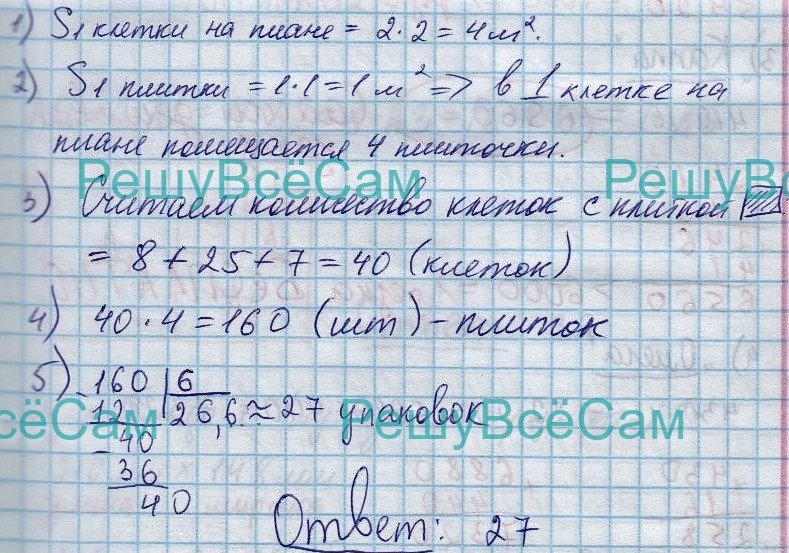 1) S1 клетки на плане = 2·2 = 4 м².
2) S1 плитки = 1·1 = 1 м² => в 1 клетке на
плане помещается 4 плиточки.
РешуВсёСам РешуВсёСам
3) Считаем количество клеток с плиткой
= 8 + 25 + 7 = 40 (клеток)
4) 40 · 4 = 160 (шт) – плиток
5) 160 | 6
12 26,6 ≈ 27 упаковок
РешуВсёСам РешуВсёСам
- 40
36
40
Ответ: 27